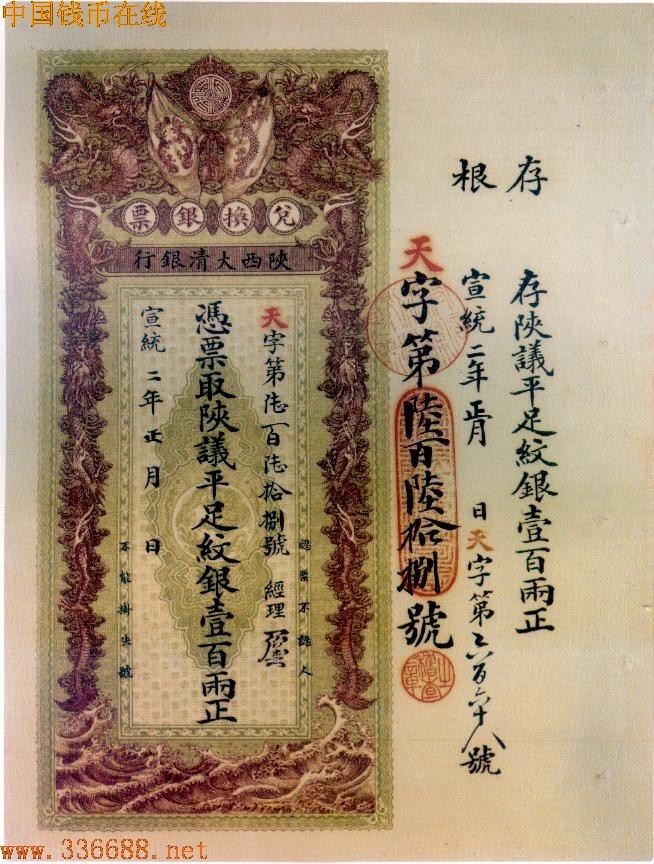 中国钱币在线
存根
存陝議平足紋銀壹百兩正
宣統二年正月　日天字第六百六十八號
天字第陸百陸拾捌號
兌換銀票
陝西大清銀行
天字第陸百陸拾捌號　經理
憑票取陝議平足紋銀壹百兩正
宣統二年正月　日
認票不認人
不能掛失號
www.336688.net